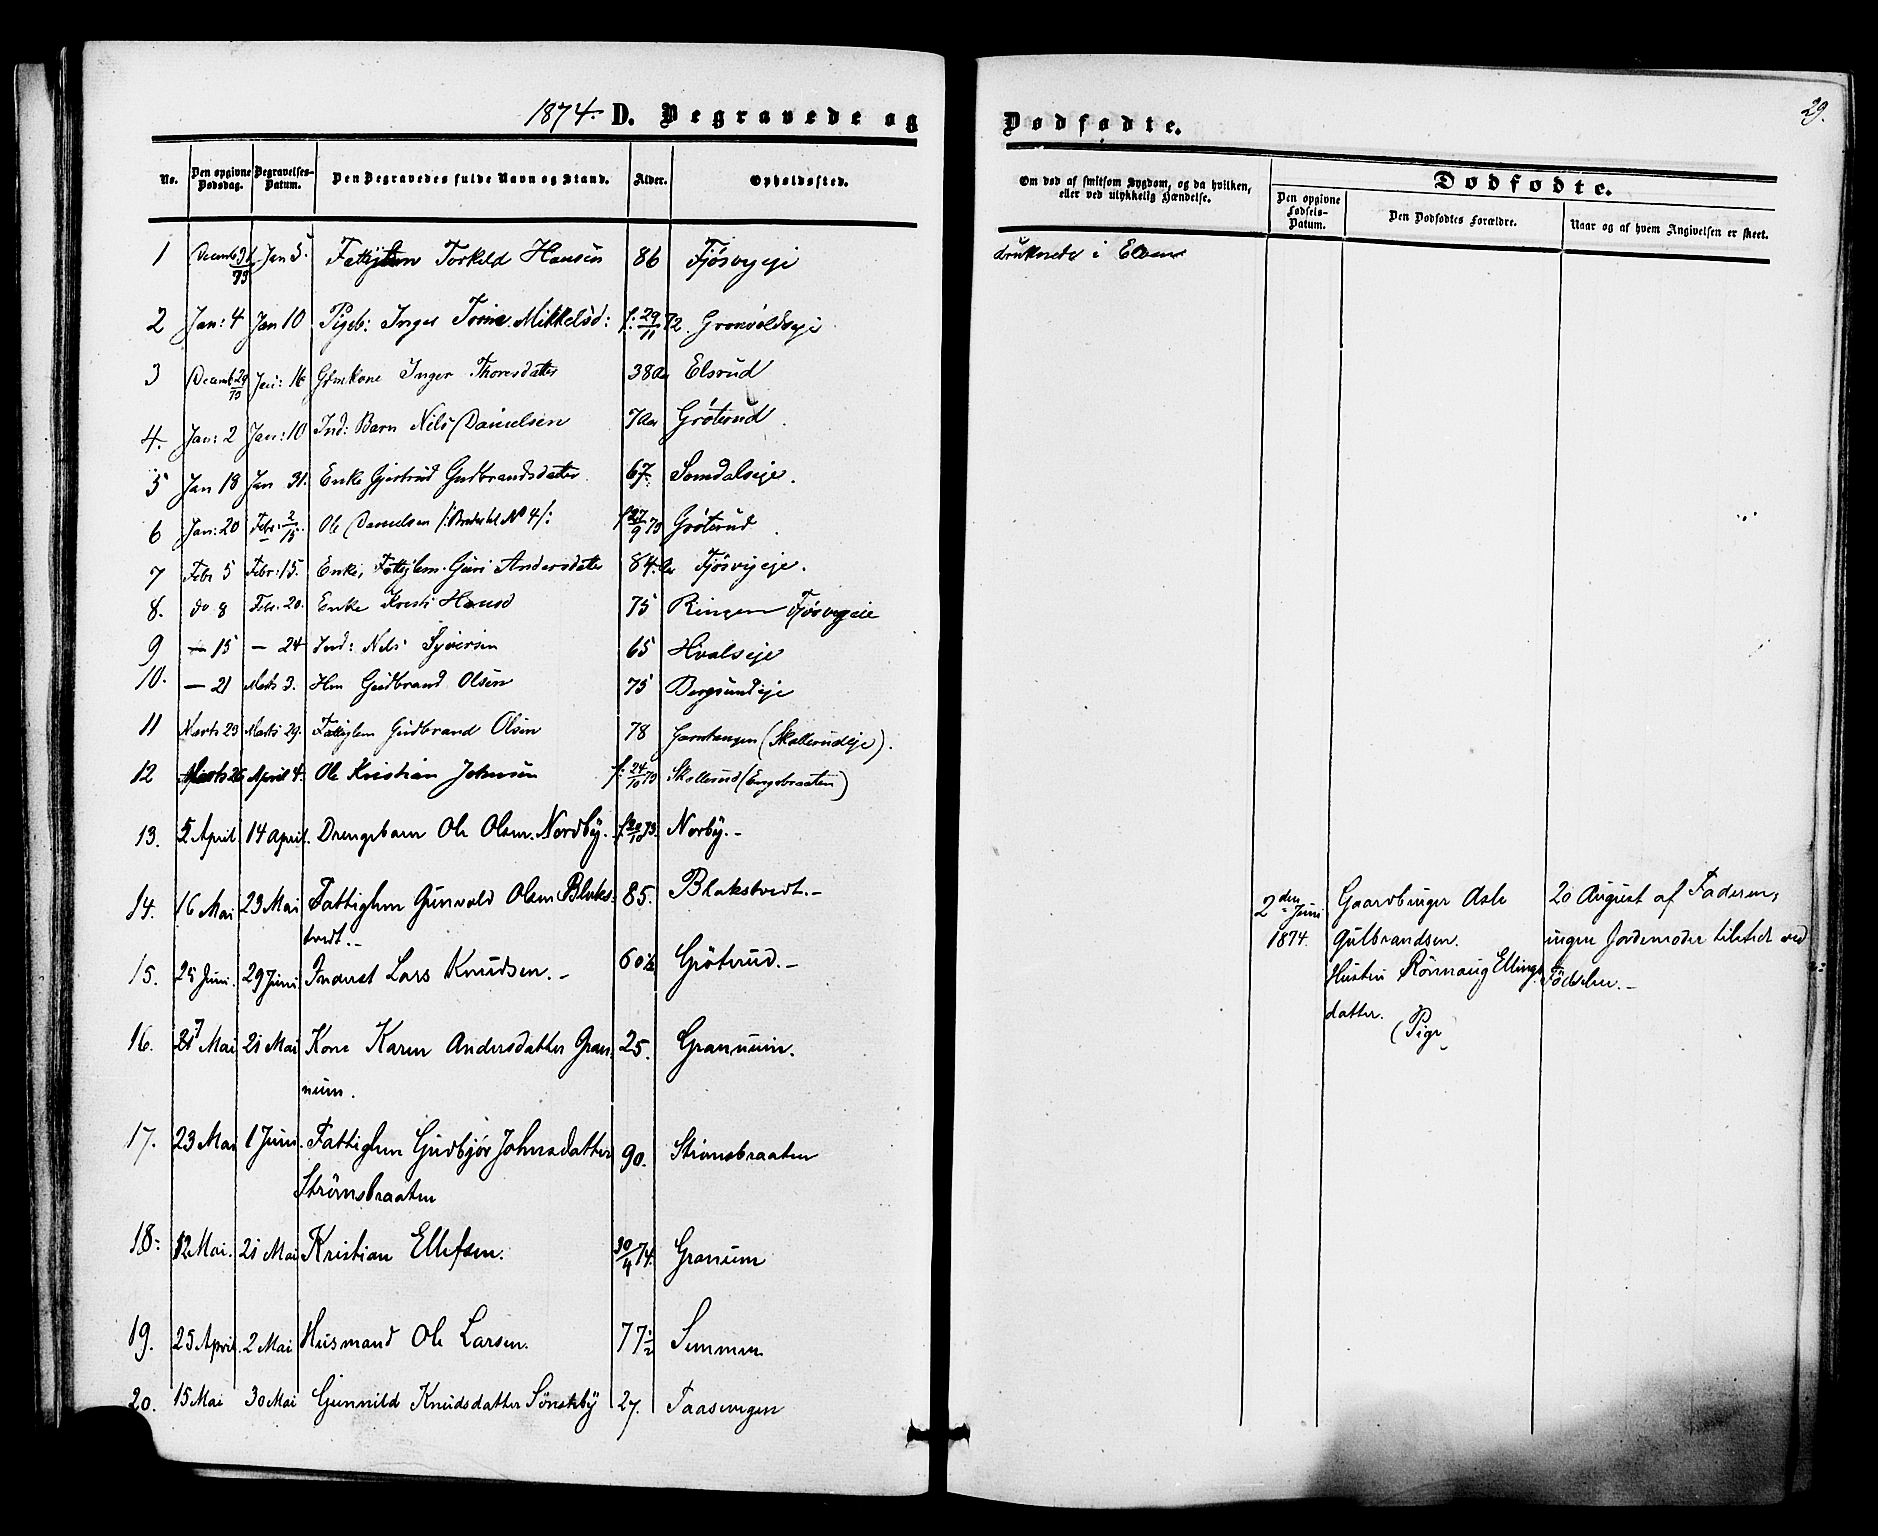 1874. D. Begravede og
No. Den opgivne Dødsdag. Begravelses-Datum. Den Begravedes fulde Navn og Stand. Alder. Opholdssted.
1 Decemb 31/73 Jan 5. Torkild Hansen 86 Fjösvigeje
2 Jan: 4 Jan 10 Pigeb: Inger Mikkelsd: f: 29/11 72. Gronvoldseje
3 Decemb 29/73 Jan: 16 Gmkone Inger Thoresdatter 38 Aar Elsrud
4. Jan: 2 Jan: 10 Ind: Barn Nils Danielsen 7 Aar Gröterud
5 Jan 18 Jan 31. Enke Gjertrud Gudbrandsdatter 67. Somdalseje.
6 Jan: 20 Febr: 2/15. Ole Danielsen /: No 4 /: f 27/9 73 Gröterud
7 Febr 5 Febr: 15. Enke, Fattiglem. Guri Andersdatter 84. Aar Fjösvigeje.
8. do 8 Febr. 20. Enke Hansd 75 Ringen Fjösvigeie
9 — 15 — 24 Ind: Nils Syversen 65 Hvalseje
10. — 21 Marts 3. Hm Gudbrand Olsen 75 Bergsundeje
11 Marts 23 Marts 29. Fattiglem Gudbrand Olsen 78 (Skollerudeje).
12 Marts 26 April 4. Ole Kristian Johnsen f: 24/10 73 Skollerud (Engebraaten)
13. 5 April. 14 april. Drengebarn Ole Olsen Nordby. Norby.-
14. 16 Mai 23 Mai Fattiglem Gunvald Olsen Blaks- 85. Blakstvedt.-
tvedt.-
15. 25 Juni. 29 Juni Inderst Lars Knudsen.- 60½ Gröterud.-
16. 27 Mai 21 Mai Kone Karen Andersdatter Gran- 25. Granum.
num.
17. 23 Mai 1 Juni. Fattiglem Gudbjør Johnsdatter 90. Strömsbraaten
Strömsbraaten
18. 12 Mai. 21 Mai Kristian Ellefsen. 30/4 74. Granum
19. 25 April. 2 Mai Husmand Ole Larsen. 77½ Semmen
20. 15 Mai 30 Mai Gunnild Knudsdatter Sönsteby 27. Taasevegen
29.
Dødfødte.
Om død af smitsom Sygdom, og da hvilken,
eller ved ulykkelig Hændelse.
Dødfødte.
Den opgivne Fødsels-Datum. Den Dødfødtes Forældre. Naar og af hvem Angivelsen er skeet.
druknede i Elven
2den Juni Gaardbruger Asle 20 August af Faderen,
1874. Gulbrandsen. ingen Jordemoder tilstede ved
Hustru Rönnaug Ellings- Födselen.-
datter.
(Pige